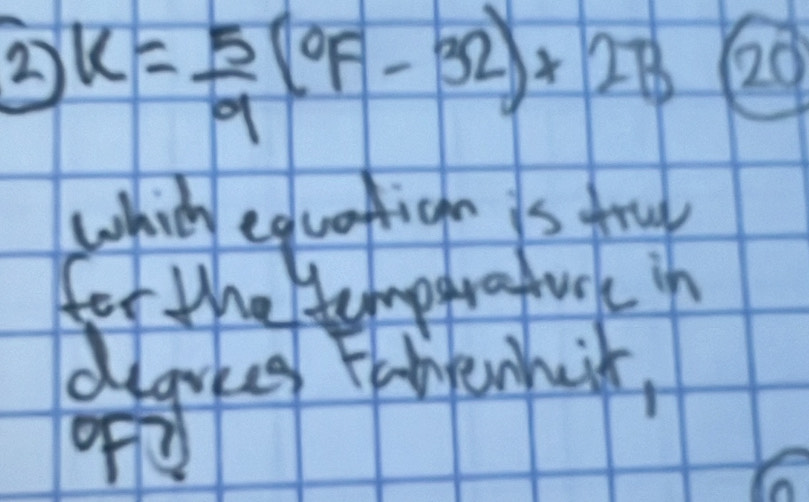 2) K = 5/9 (°F - 32) + 273 20
which equation is true
for the temperature in
degrees Fahrenheit,
°F?